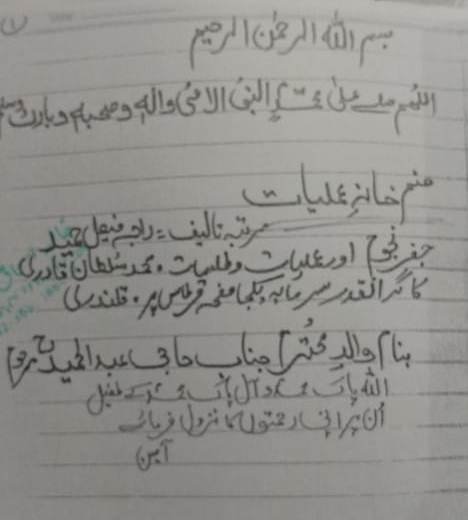 بسم اللہ الرحمٰن الرحیم
اللھم صلے علیٰ محمدٍ النبیُ الامیُ والہٖ وصحبہٖ وبارک وسلم
صنم خانہِ عملیات
مرتبہ تالیف = راجہ فیصل حمید
جفر اور عملیات و طلسمات • محمد سلطان قادری
کا گرانقدر سرمایہ یکجا صفحہ قرطاس پر • قلندری
بنام والدِ محترم جناب حاجی عبدالحمید مرحوم
اللہ پاک محمد و آلِ پاک محمد کے طفیل
اُن پر اپنی رحمتوں کا نزول فرمائے
آمین